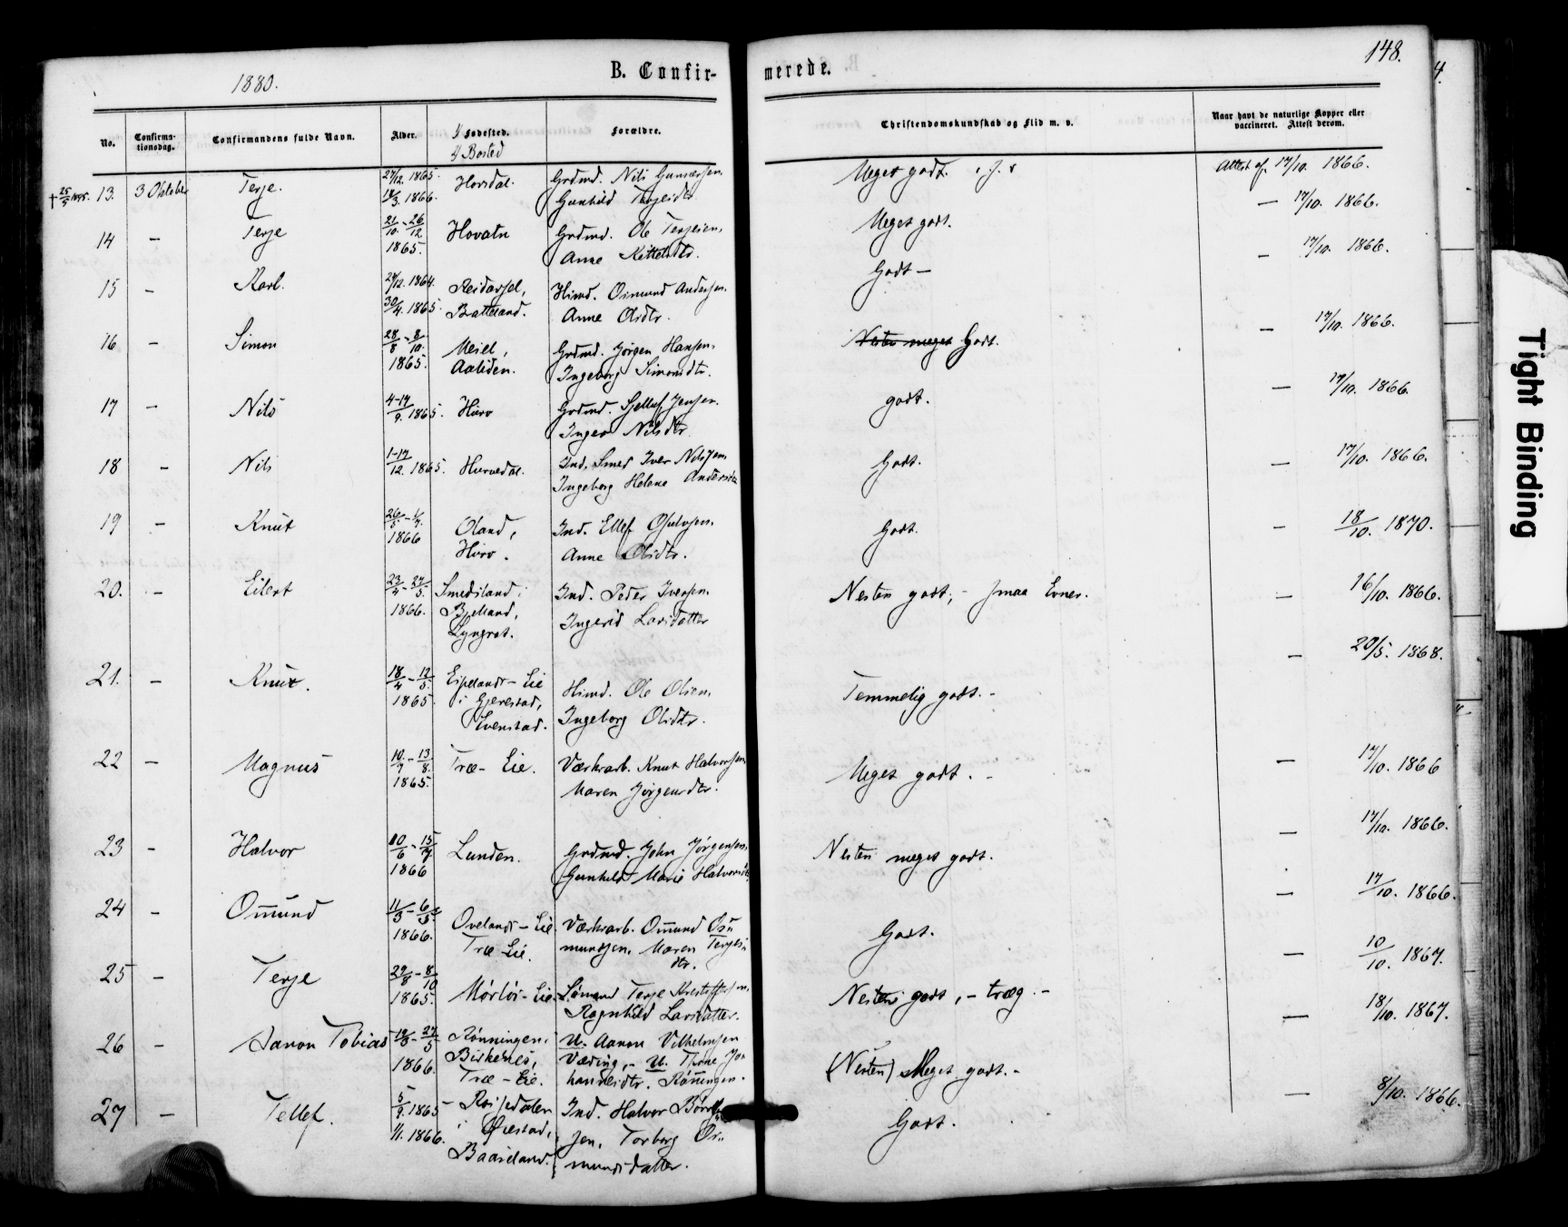 1880.
B. Confir-
merede.
148.
No.
Confirma-
tionsdag.
Confirmandens fulde Navn.
Alder.
1/ Fødested.
2/ Bosted
Forældre.
Christendomskundskab og Flid m. v.
Naar havt de naturlige Kopper eller
vaccineret. Attest derom.
† 25/5 13. 3 Oktober Terje. 27/12. 1865. Hovsdal. Grdmd. Nils Gunnarsen. Meget godt. Attest af 17/10. 1866.
18/3. 1866. Gunhild Terjesdtr
14 - Terje 21/10 - 26/12 Hovatn Grdmd. Ole Terjesen, Meget godt. — 17/10. 1866.
1865. Anne Kittelsdtr.
15 - Karl. 27/12. 1864. Reidarsjel, Hmd. Osmund Andersen. Godt — — 17/10. 1866.
30/4. 1865. Batteland. Anne Olsdtr.
16 - Simon 28/8 - 8/10. Meiel, Grdmd. Jørgen Hansen, Nesten meget Godt. — 17/10. 1866.
1865. Aaliden. Ingeborg Simonsdtr.
17 - Nils 4-17/9. 1865. Hurv Grdmd. Sjellef Jensen. godt. — 17/10. 1866
Inger Nilsdtr
18 - Nils 1-17/12. 1865. Hurvedal. Ind. Smed Iver Nilssen, Godt. — 17/10. 1866.
Ingeborg Helene Andersdtr
19 - Knut 26/5 - 1/7. Oland, Ind. Ellef Osulvsen. Godt. — 18/10. 1870.
1866 Hurv. Anne Olsdtr.
20. - Eilert 23/4 - 27/5. Smedsland i Ind. Peder Iversen. Nesten godt, - smaa Evner. — 16/10. 1866.
1866. Bjelland, Ingerid Larsdatter
Lyngrot.
21. - Knut. 18/4 - 12/5 Eipeland-Eie Hmd. Ole Olsen. Temmelig godt. - — 20/5. 1868.
1865. i Gjerestad, Ingeborg Olsdtr.
Evenstad.
22 - Magnus 10/7 - 13/8. Træ-Eie. Værkarb. Knut Halvorsen Meget godt. - — 17/10. 1866
1865. Maren Jørgensdtr.
23 - Halvor 10/6 - 15/7 Lunden. Grdmd. John Jørgensen, Nesten meget godt. — 17/10. 1866.
1866 Gunhild Marie Halvorsdtr
24 - Omund 11/3 - 6/5. Oveland-Eie Værkarb. Omund Os- Godt. — 17/10. 1866.
1866. Træ-Eie. mundsen, Maren Terjes-
dtr.
25 - Terje 27/8 - 8/10 Mørfør-Eie. Sømand Terje Kristoffersen, Nesten godt, - træg. - — 10/10. 1867.
1865. Ragnhild Larsdatter.
26 - Aanon Tobias 18/3 - 27/5 Rønningen i U. Aanon Vilhelmsen (Nesten) Meget godt. - — 18/10. 1867.
1866. Birkenes, Væding, - U. Thrine Jo-
Træ-Eie. hannesdtr. Rønningen.
27 - Tellef. 5/9. 1865 - Rossedalen Ind. Halvor Børre- Godt. — 8/10. 1866.
1/1. 1866. i Øiestad, sen, Torborg Os-
Baaseland. mundsdatter.
Tight Binding